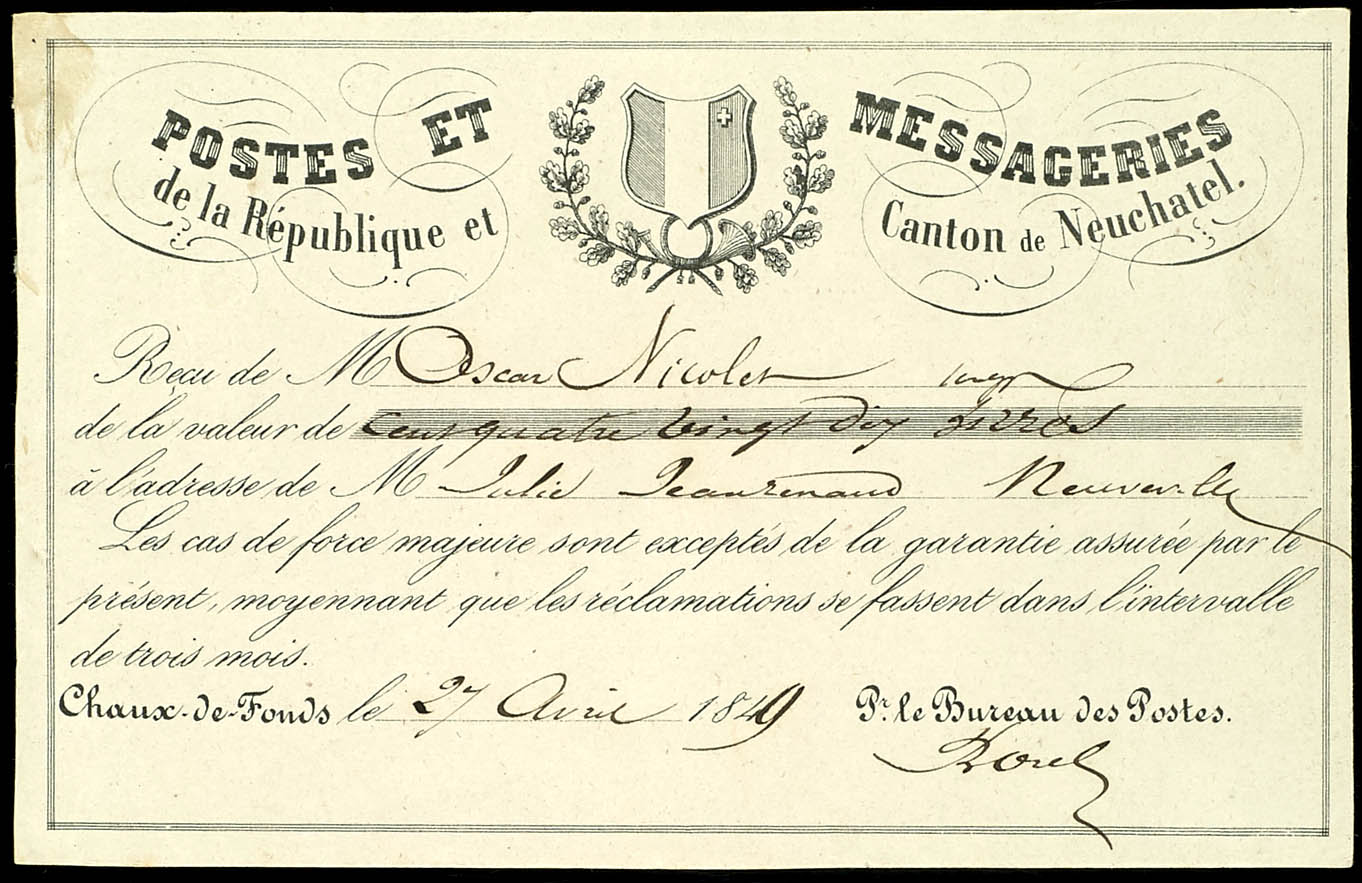 POSTES ET MESSAGERIES
de la République et Canton de Neuchatel.
Reçu de M Oscar Nicolet
de la valeur de Cent quatre vingt dix
à l'adresse de M Julie Jeanrenaud Neuveville
Les cas de force majeure sont exceptés de la garantie assurée par le
présent, moyennant que les réclamations se fassent dans l'intervalle
de trois mois.
Chaux-de-Fonds le 27 Avril 1849 Pr. le Bureau des Postes.